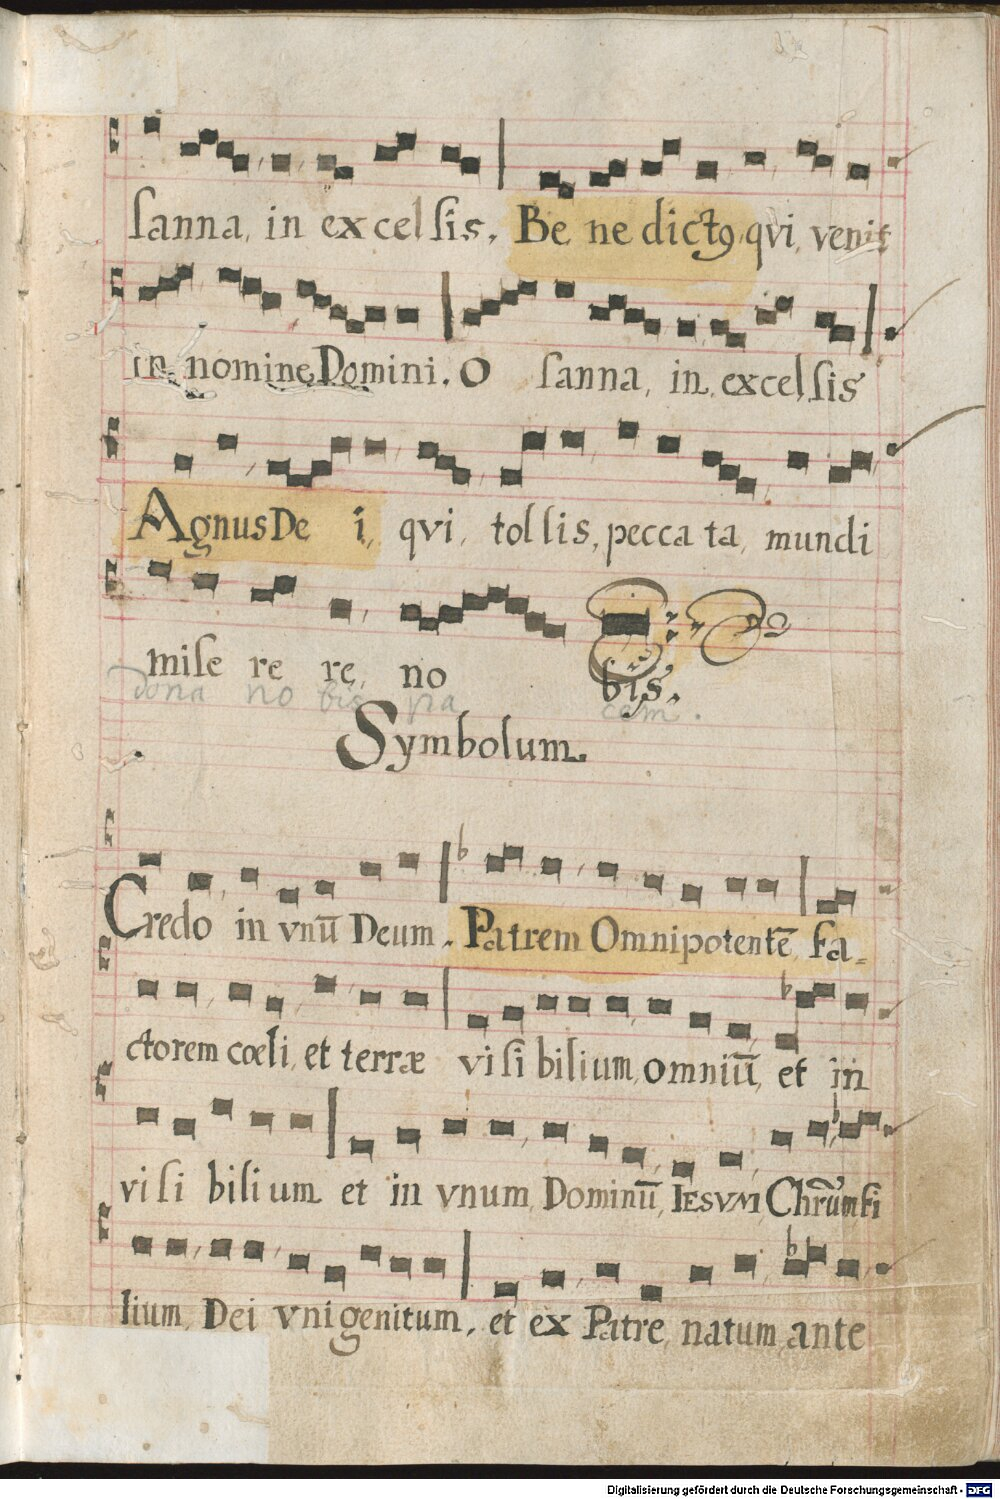 ſanna, in excelſis. Be ne dictꝯ qvi, venit
in nomine Domini. O ſanna, in excelſis
Agnus De i, qvi, tolliſ, pecca ta, mundi
miſe re re, no bis.
dona no bis pa cem.
Symbolum.
Credo in vnū Deum. Patrem Omnipotentē fa-
ctorem cœli, et terræ viſi bilium, omniū, et in
viſi bilium et in vnum, Dominū, IESVM, Chrūm fi
lium, Dei vnigenitum, et ex Patre, natum, ante
Digitalisierung gefördert durch die Deutsche Forschungsgemeinschaft - DFG